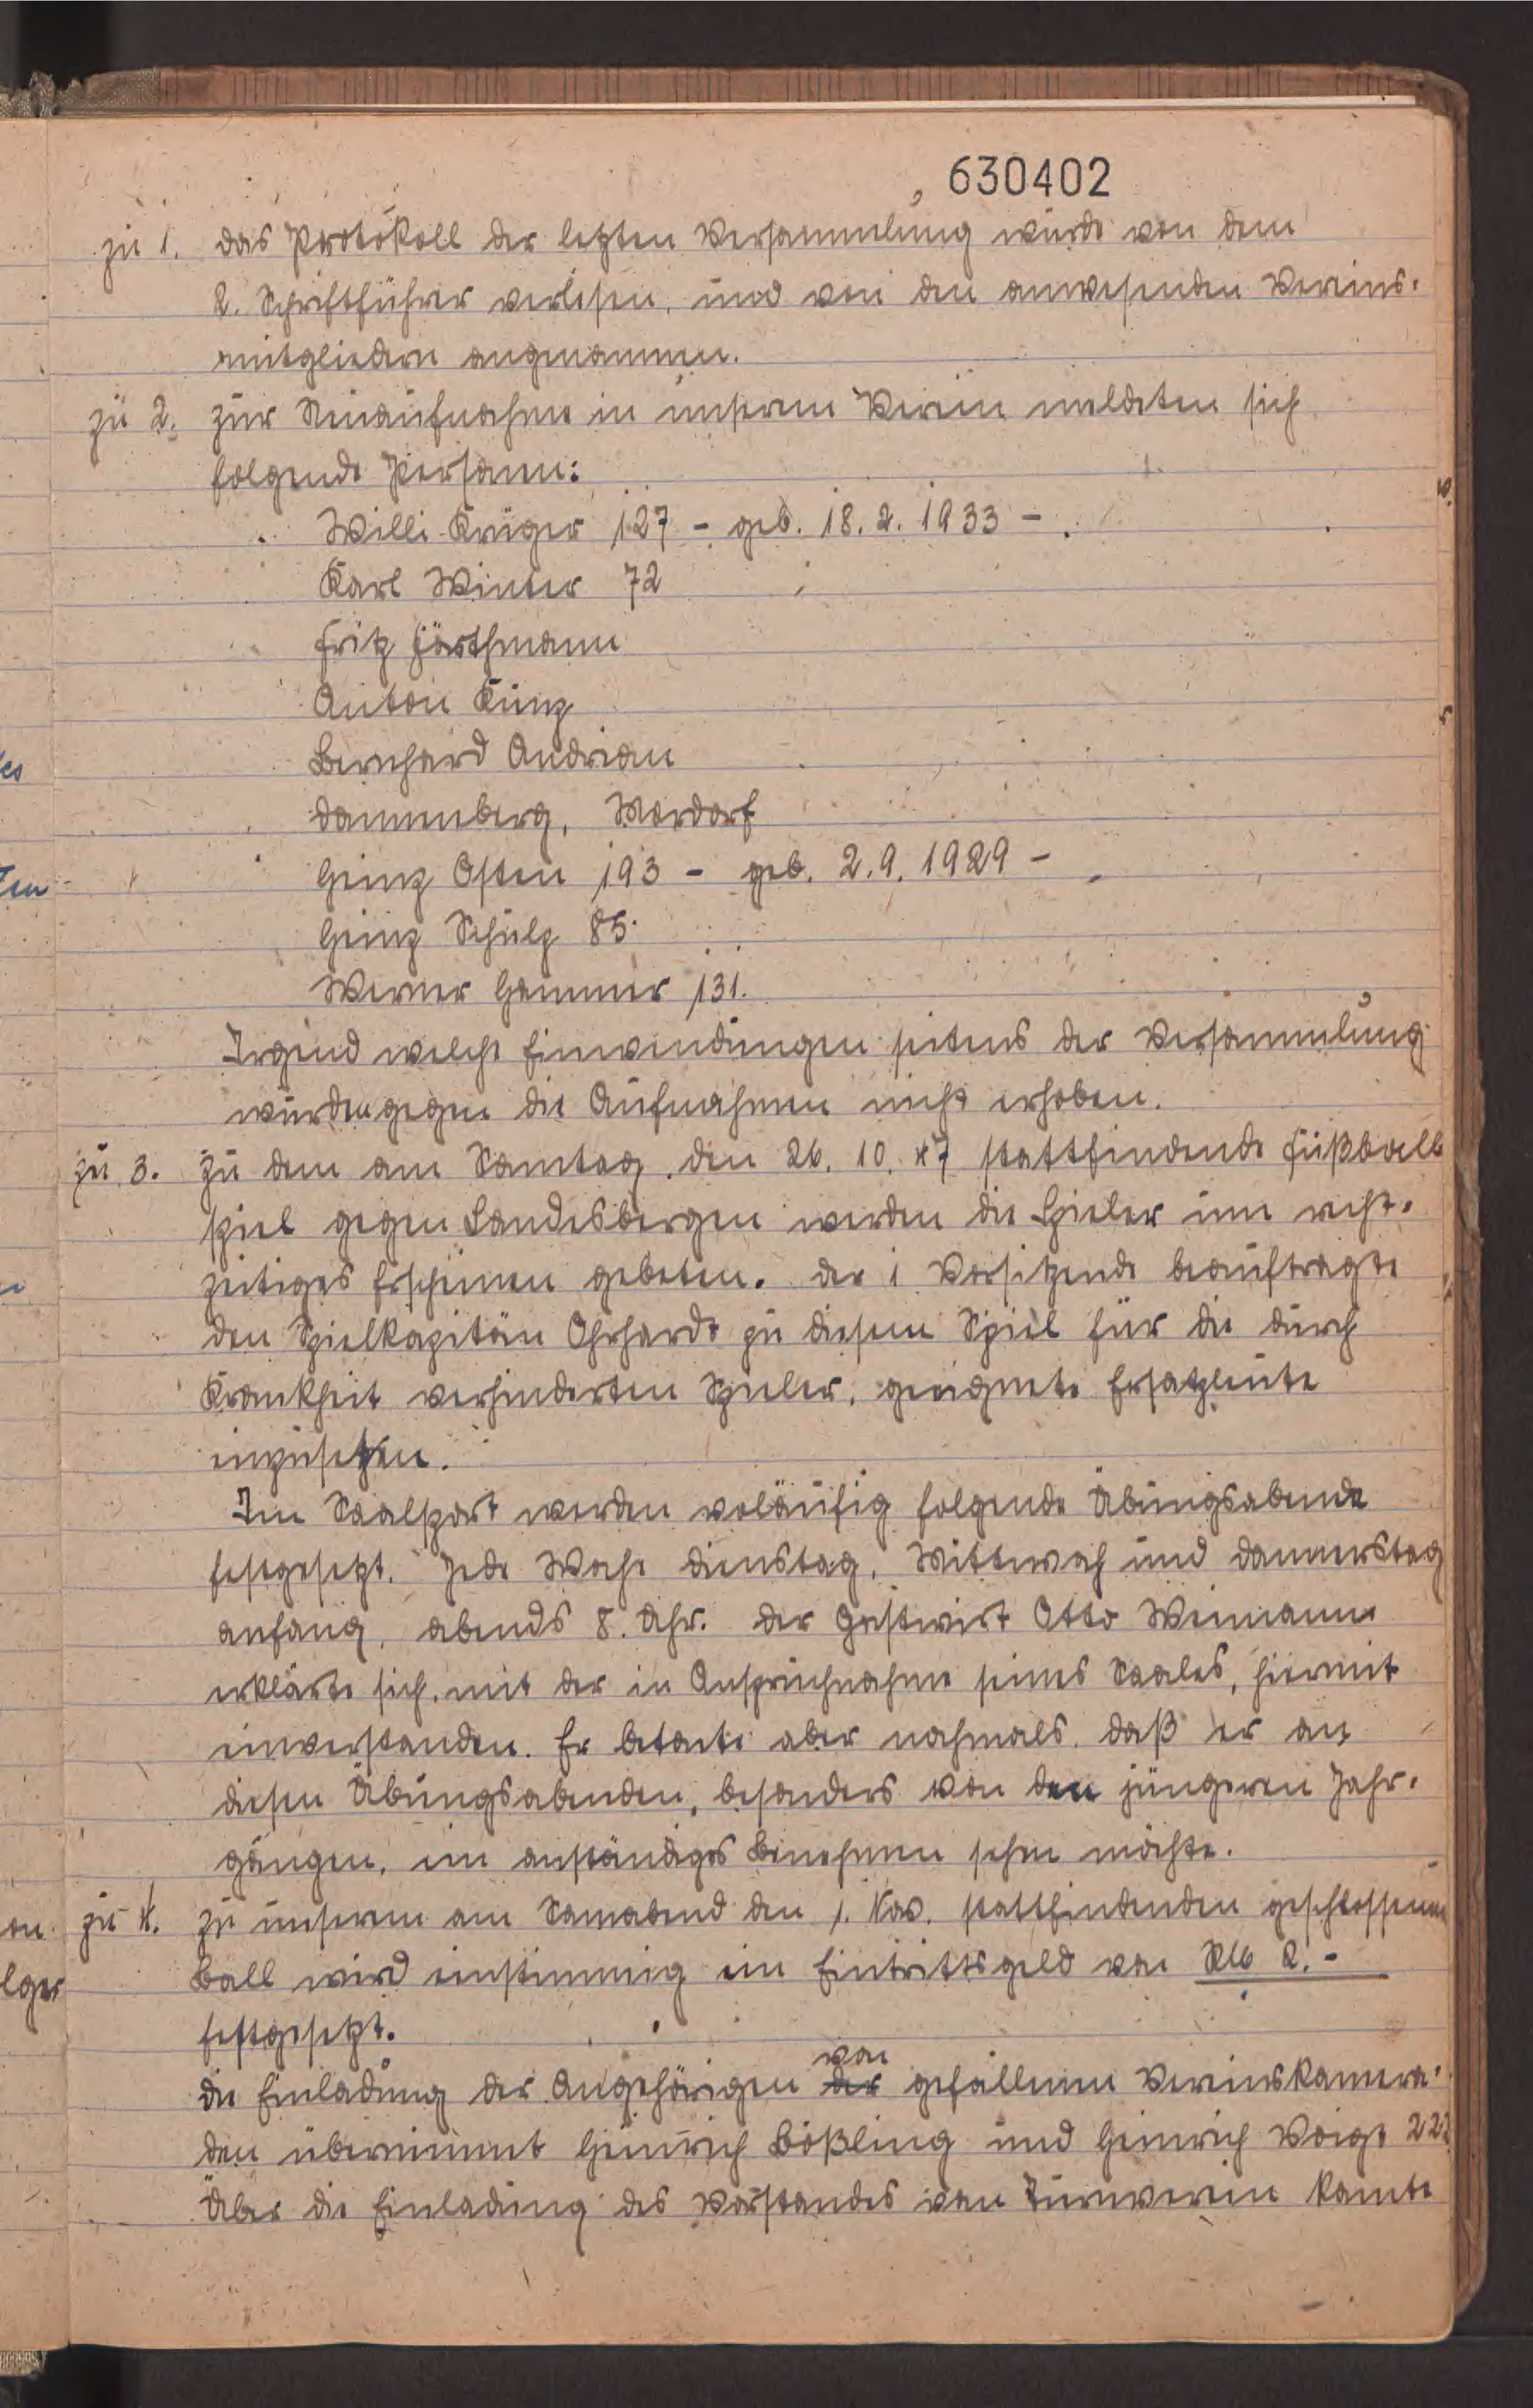 630402
zu 1. Das Protokoll der letzten Versammlung wurde von dem
2. Schriftführer verlesen, und von den anwesenden Vereins-
mitgliedern angenommen.
zu 2. Zur Neuaufnahme in unserem Verein meldeten sich
folgende Personen:
Willi Krüger 127 - geb. 18.2.1933 -
Karl Winter 72
Fritz
Anton Kunz
Bernhard Andrian
Dannenberg, Mordorf
Heinz Osten 193 - geb. 2.9.1929 -
Heinz Schulz 85
Werner Hammer 131.
Irgend welche Einwendungen seitens der Versammlung
wurden gegen die Aufnahmen nicht erhoben.
zu 3. Zu dem am Sonntag, den 26.10.47 stattfindende Fußball
spiel gegen Landesbergen werden die Spieler um recht-
zeitiges Erscheinen gebeten. Der 1 Vorsitzende beauftragte
den Spielkapitän Ohrhardt zu diesem Spiel für die durch
Krankheit verhinderten Spieler, geeignete Ersatzleute
einzusetzen.
Im Saalsport werden voläufig folgende Übungsabende
festgesetzt. Jede Woche Dienstag, Mittwoch und Donnerstag
anfang, abends 8. Uhr. Der Gastwirt Otto Weimann
erklärte sich mit der in Anspruchnahme seines Saales, hiermit
einverstanden. Er betonte aber nochmals, daß er an
diesen Übungsabenden, besonders von den jüngeren Jahr-
gängen, ein anständiges Benehmen sehen möchte.
zu 4. Zu unserem am Sonnabend den 1. Nov. stattfindenden geschlossenen
Ball wird einstimmig ein Eintrittsgeld von RM 2.-
festgesetzt.
von
Die Einladung der Angehörigen der gefallenen Vereinskamera-
den übernimmt Heinrich Bößling und Heinrich Voigt 222
Über die Einladung des Vorstandes von Turnverein konnte